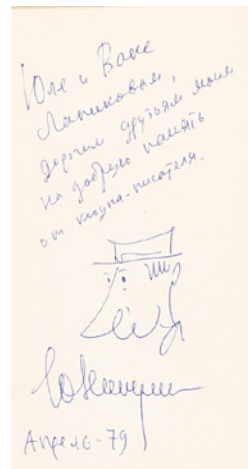 Юле и Ване
Лапиковым,
дорогим друзьям моим
на добрую память
от клоуна-писателя.
ЮНикулин
Апрель-79